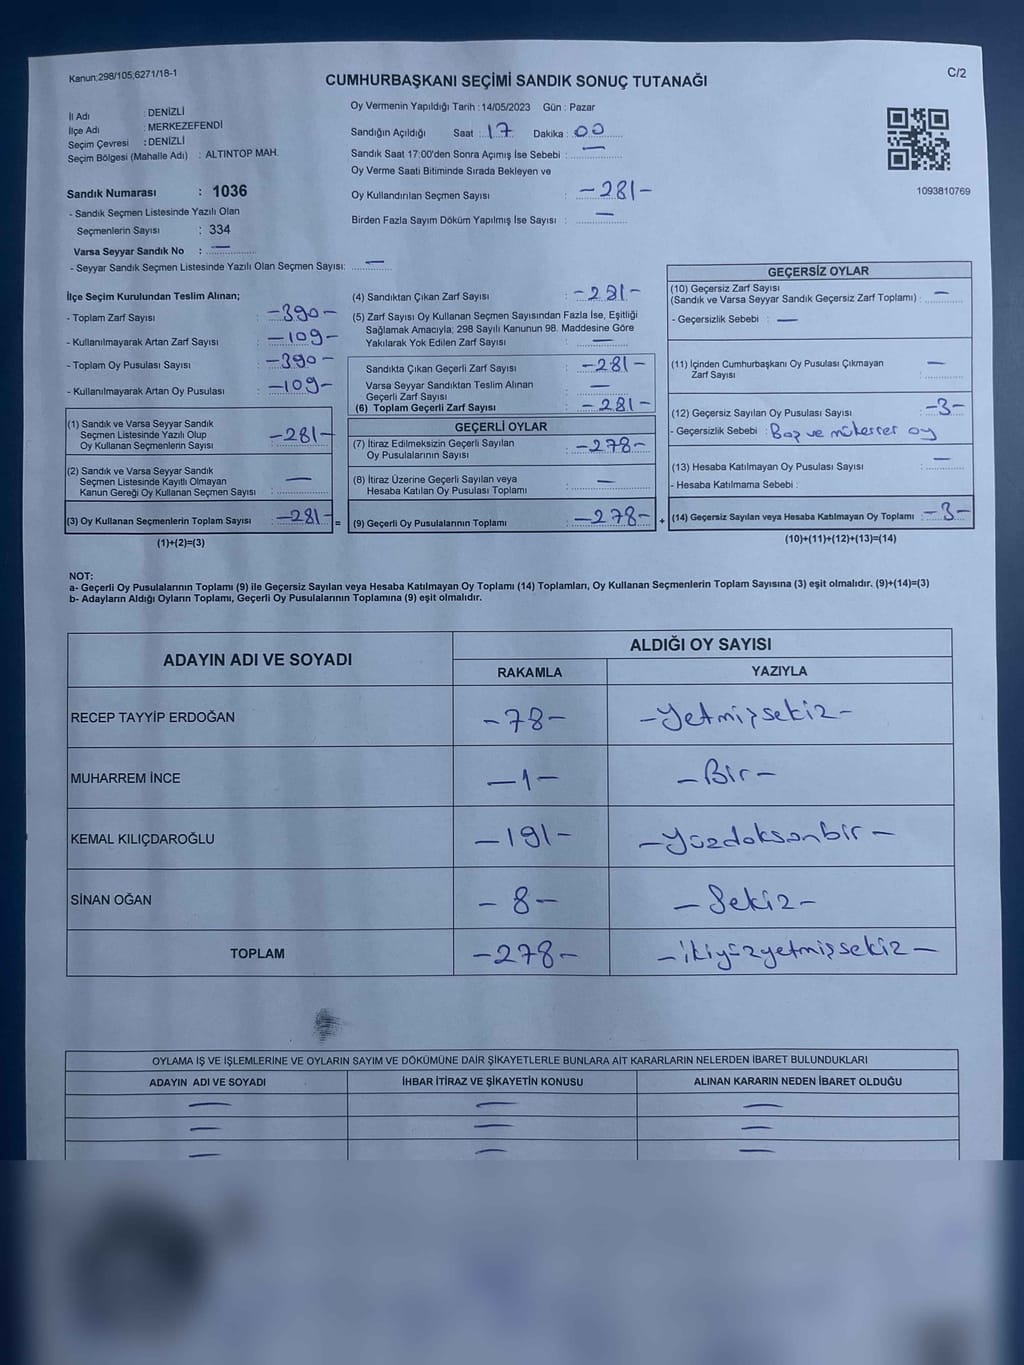 Kanun:298/105,6271/18-1
C/2
CUMHURBAŞKANI SEÇİMİ SANDIK SONUÇ TUTANAĞI
İl Adı : DENİZLİ
İlçe Adı : MERKEZEFENDİ
Seçim Çevresi : DENİZLİ
Seçim Bölgesi (Mahalle Adı) : ALTINTOP MAH.
Sandık Numarası : 1036
- Sandık Seçmen Listesinde Yazılı Olan
Seçmenlerin Sayısı : 334
Varsa Seyyar Sandık No : —
- Seyyar Sandık Seçmen Listesinde Yazılı Olan Seçmen Sayısı: —
Oy Vermenin Yapıldığı Tarih : 14/05/2023 Gün : Pazar
Sandığın Açıldığı Saat : 17 Dakika : 00
Sandık Saat 17:00'den Sonra Açımış İse Sebebi : —
Oy Verme Saati Bitiminde Sırada Bekleyen ve
Oy Kullandırılan Seçmen Sayısı : -281-
Birden Fazla Sayım Döküm Yapılmış İse Sayısı : —
1093810769
İlçe Seçim Kurulundan Teslim Alınan;
- Toplam Zarf Sayısı : -390-
- Kullanılmayarak Artan Zarf Sayısı : -109-
- Toplam Oy Pusulası Sayısı : -390-
- Kullanılmayarak Artan Oy Pusulası : -109-
(1) Sandık ve Varsa Seyyar Sandık
Seçmen Listesinde Yazılı Olup
Oy Kullanan Seçmenlerin Sayısı : -281-
(2) Sandık ve Varsa Seyyar Sandık
Seçmen Listesinde Kayıtlı Olmayan
Kanun Gereği Oy Kullanan Seçmen Sayısı : —
(3) Oy Kullanan Seçmenlerin Toplam Sayısı : -281- =
(1)+(2)=(3)
(4) Sandıktan Çıkan Zarf Sayısı : -281-
(5) Zarf Sayısı Oy Kullanan Seçmen Sayısından Fazla İse, Eşitliği
Sağlamak Amacıyla; 298 Sayılı Kanunun 98. Maddesine Göre
Yakılarak Yok Edilen Zarf Sayısı : —
Sandıkta Çıkan Geçerli Zarf Sayısı : -281-
Varsa Seyyar Sandıktan Teslim Alınan
Geçerli Zarf Sayısı : —
(6) Toplam Geçerli Zarf Sayısı : -281-
GEÇERLİ OYLAR
(7) İtiraz Edilmeksizin Geçerli Sayılan
Oy Pusulalarının Sayısı : -278-
(8) İtiraz Üzerine Geçerli Sayılan veya
Hesaba Katılan Oy Pusulası Toplamı : —
(9) Geçerli Oy Pusulalarının Toplamı : -278- +
GEÇERSİZ OYLAR
(10) Geçersiz Zarf Sayısı
(Sandık ve Varsa Seyyar Sandık Geçersiz Zarf Toplamı) : —
- Geçersizlik Sebebi : —
(11) İçinden Cumhurbaşkanı Oy Pusulası Çıkmayan
Zarf Sayısı : —
(12) Geçersiz Sayılan Oy Pusulası Sayısı : -3-
- Geçersizlik Sebebi : Boş ve mükerrer oy
(13) Hesaba Katılmayan Oy Pusulası Sayısı : —
- Hesaba Katılmama Sebebi :
(14) Geçersiz Sayılan veya Hesaba Katılmayan Oy Toplamı : -3-
(10)+(11)+(12)+(13)=(14)
NOT:
a- Geçerli Oy Pusulalarının Toplamı (9) ile Geçersiz Sayılan veya Hesaba Katılmayan Oy Toplamı (14) Toplamları, Oy Kullanan Seçmenlerin Toplam Sayısına (3) eşit olmalıdır. (9)+(14)=(3)
b- Adayların Aldığı Oyların Toplamı, Geçerli Oy Pusulalarının Toplamına (9) eşit olmalıdır.
ADAYIN ADI VE SOYADI
ALDIĞI OY SAYISI
RAKAMLA YAZIYLA
RECEP TAYYİP ERDOĞAN -78- -Yetmişsekiz-
MUHARREM İNCE -1- -Bir-
KEMAL KILIÇDAROĞLU -191- -Yüzdoksanbir-
SİNAN OĞAN -8- -Sekiz-
TOPLAM -278- -ikiyüzyetmişsekiz-
OYLAMA İŞ VE İŞLEMLERİNE VE OYLARIN SAYIM VE DÖKÜMÜNE DAİR ŞİKAYETLERLE BUNLARA AİT KARARLARIN NELERDEN İBARET BULUNDUKLARI
ADAYIN ADI VE SOYADI İHBAR İTİRAZ VE ŞİKAYETİN KONUSU ALINAN KARARIN NEDEN İBARET OLDUĞU
— — —
— — —
— — —